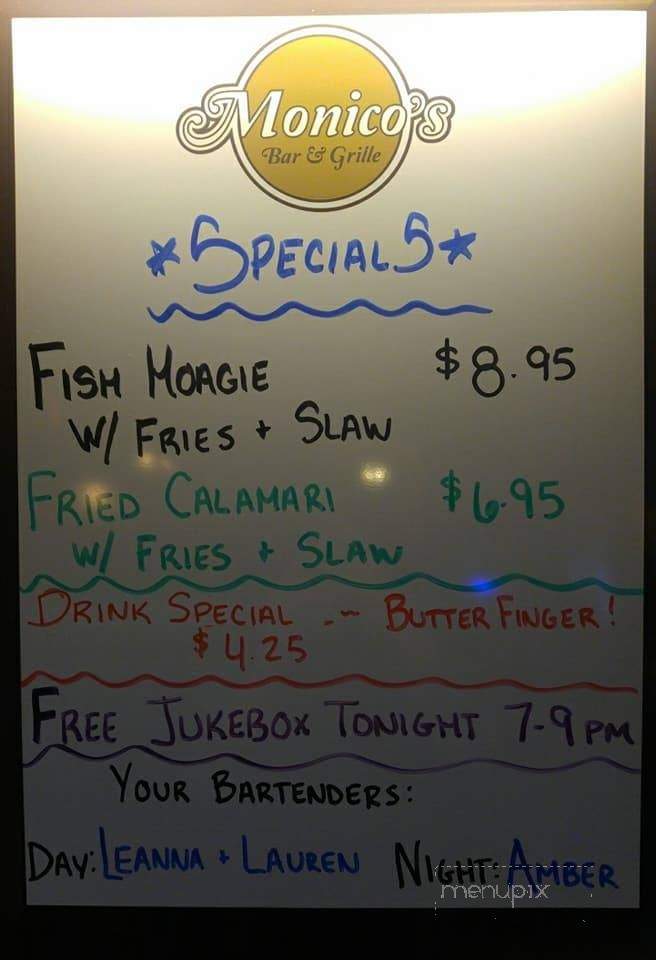 Monico's
Bar & Grille
*SPECIALS*
FISH HOAGIE $8.95
W/ FRIES + SLAW
FRIED CALAMARI $6.95
W/ FRIES + SLAW
DRINK SPECIAL -~ BUTTER FINGER!
$4.25
FREE JUKEBOX TONIGHT 7-9 PM
YOUR BARTENDERS:
DAY: LEANNA + LAUREN NIGHT: AMBER
menupix